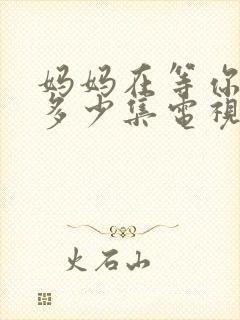 妈妈在等你
多少集電視
火石山